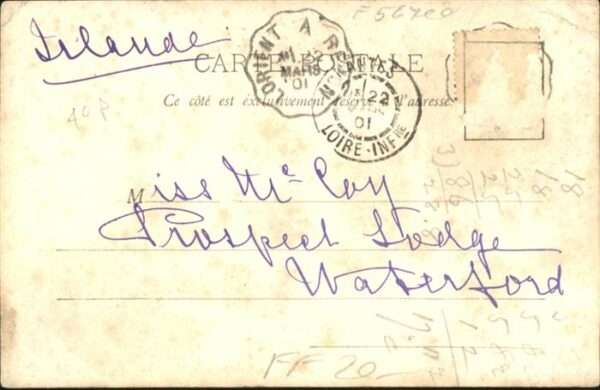 Irlande
F56700
CARTE POSTALE
LORIENT A R
22
MARS
01
NANTES
22
01
LOIRE-INFRE
Ce côté est exclusivement réservé à l'adresse
40F
Miss McCoy
Prospect Lodge
Waterford
18
18
3)86
FF 20-